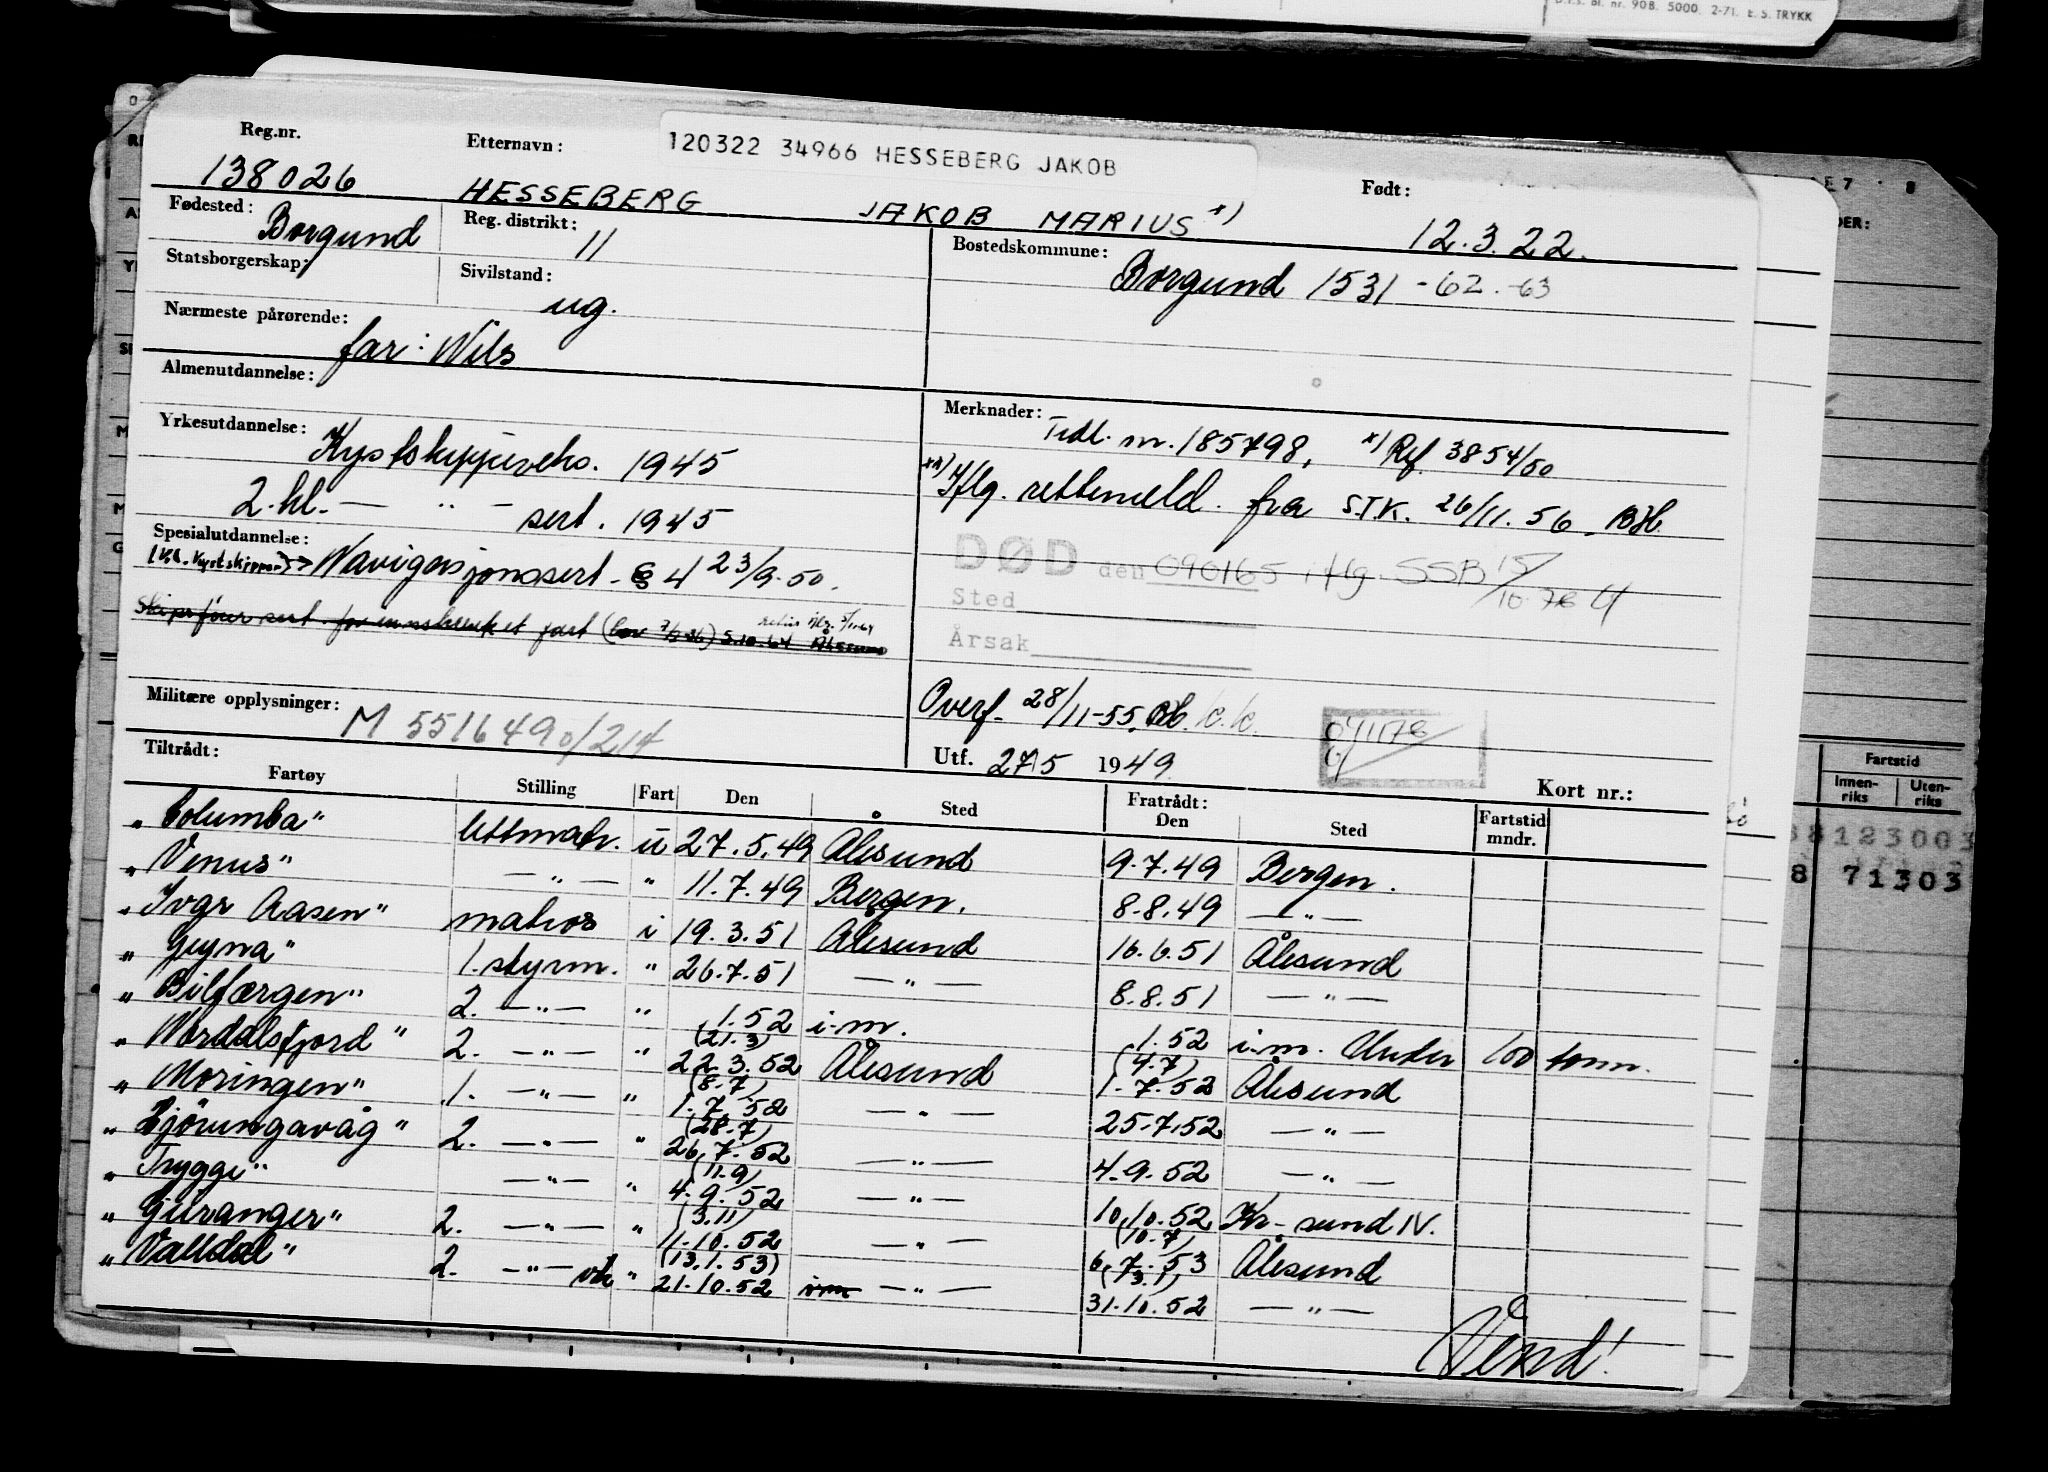 D.I.S. Bl. nr. 908. 5000. 2-71. E. S. TRYKK
Reg.nr. Etternavn: 120322 34966 HESSEBERG JAKOB Født:
138026 HESSEBERG JAKOB MARIUS *) 12.3.22.
Fødested: Borgund Reg. distrikt: 11 Bostedskommune: Borgund 1531 -62.-63
Statsborgerskap: Sivilstand: ug.
Nærmeste pårørende: far: Nils
Almenutdannelse:
Merknader: Tidl. nr. 185798, *) Ref. 3854/50
Yrkesutdannelse: Kystskippereks. 1945
**) Iflg. rettemeld. fra STK. 26/11.56. BH.
2. kl. — " — sert. 1945
DØD den 090165 iflg. SSB 15/10-76 G
Spesialutdannelse:
(Kl. Kystskipper) → Navigasjonssert. § 4 23/9.50.
Sted
Skipsfører sert. for innskrenket fart 5.10.64
Årsak
Militære opplysninger: M 5516490/214
Overf. 28/11-55.
Utf. 27/5 1949
071178
Kort nr.:
Tiltrådt: Fratrådt:
Fartøy Stilling Fart Den Sted Den Sted Fartstid mndr.
"Columba" lettmatr. u 27.5.49 Ålesund 9.7.49 Bergen.
"Venus" — " — " 11.7.49 Bergen. 8.8.49 — " —
"Ivar Aasen" matros i 19.3.51 Ålesund 16.6.51 Ålesund
"Geyma" 1. styrm. " 26.7.51 — " — 8.8.51 — " —
"Bilfærgen" 2. — " — " 1.52 i.m. 1.52 i.m. Under 100 tonn.
"Nordalsfjord" 2. — " — " (21.3) 22.3.52 Ålesund (4.7) 1.7.52 Ålesund
"Moringen" 1. — " — " (8.7) 1.7.52 — " — 25.7.52 — " —
"Hjörungavåg" 2. — " — " (28.7) 26.7.52 — " — 4.9.52 — " —
"Trygge" — " — " (11.9) 4.9.52 — " — 10.10.52 Kr.sund N.
"Geiranger" 2. — " — " (3.11) 11.10.52 — " — (10.7) 6.7.53 Ålesund
"Valldal" 2. — " — vik " (13.1.53) 21.10.52 — " — (3.1) 31.10.52 — " —
Vend!
Fartstid
Innenriks Utenriks
8123003
8 71303